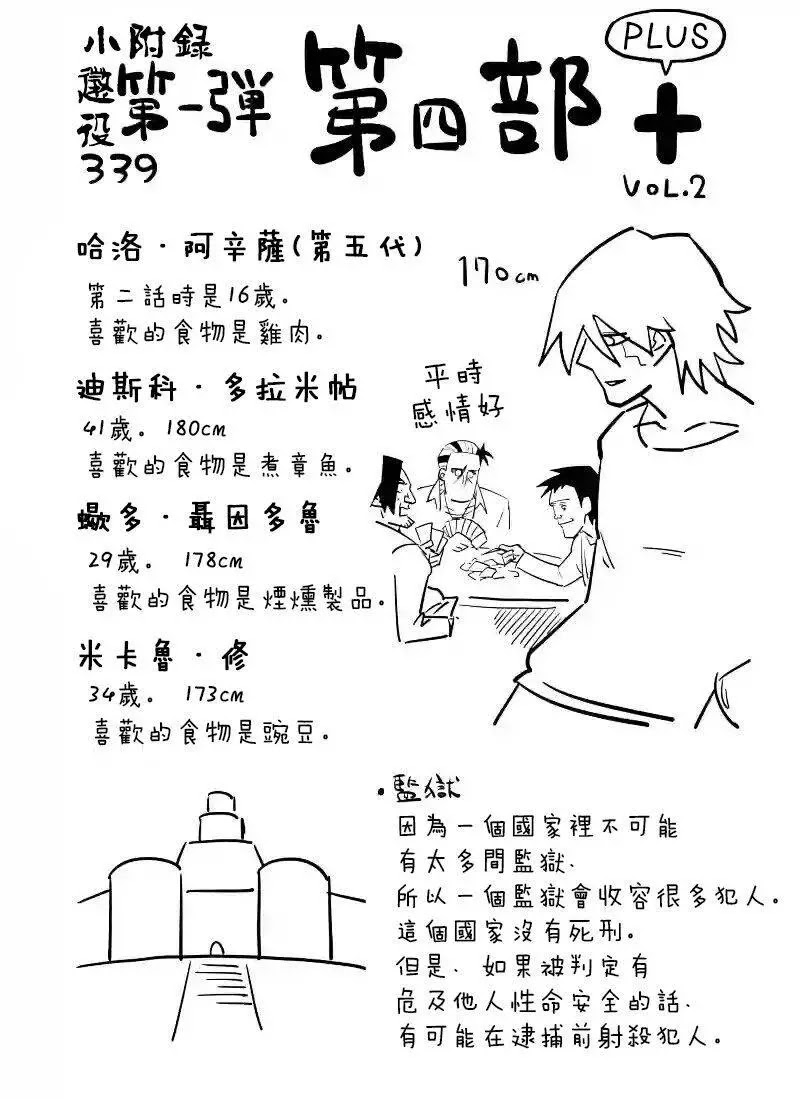 小附錄
懲役
339
第一弾
第四部+
PLUS
VOL.2
哈洛・阿辛薩(第五代)
第二話時是16歲。
喜歡的食物是雞肉。
170cm
迪斯科・多拉米帖
41歲。 180cm
喜歡的食物是煮章魚。
平時
感情好
蠍多・聶因多魯
29歲。 178cm
喜歡的食物是煙燻製品。
米卡魯・修
34歲。 173cm
喜歡的食物是豌豆。
・監獄
因為一個國家裡不可能
有太多間監獄、
所以一個監獄會收容很多犯人。
這個國家沒有死刑。
但是、如果被判定有
危及他人性命安全的話、
有可能在逮捕前射殺犯人。